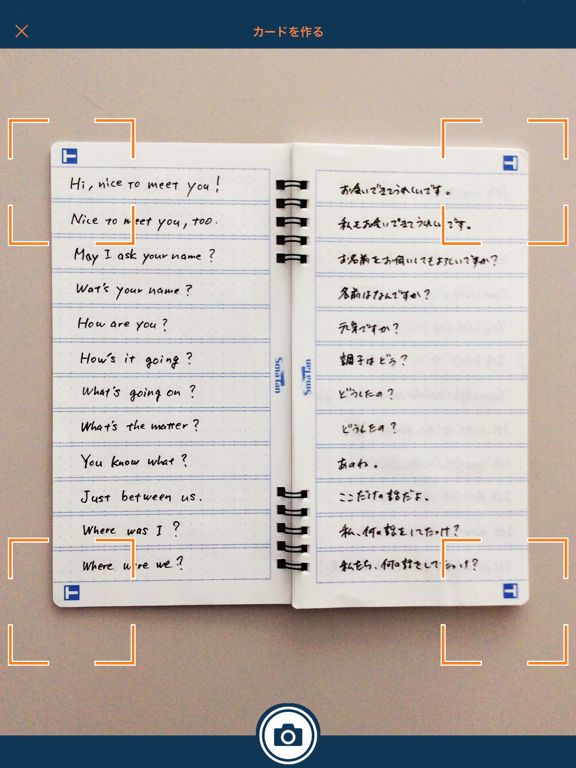 カードを作る
Hi, nice to meet you!
お会いできてうれしいです。
Nice to meet you, too.
私もお会いできてうれしいです。
May I ask your name?
お名前をお伺いしてもよろしいですか?
Wat's your name?
名前はなんですか?
How are you?
元気ですか?
How's it going?
調子はどう?
What's going on?
どうしたの?
What's the matter?
どうしたの?
You know what?
あのね。
Just between us.
ここだけの話だよ、
Where was I?
私、何の話をしてたっけ?
Where were we?
私たち、何の話をしてたっけ?
SmaTan
SmaTan